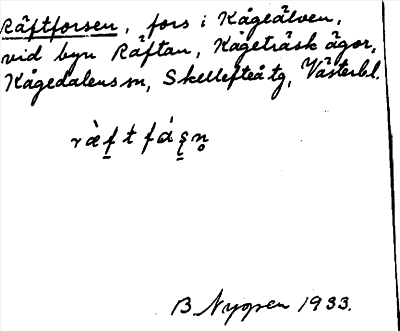 Räftforsen, fors i Kågeälven,
vid byn Räftan, Kågeträsk ägor,
Kågedalens sn, Skellefteå tg, Västerbl.
B Nygren 1933.